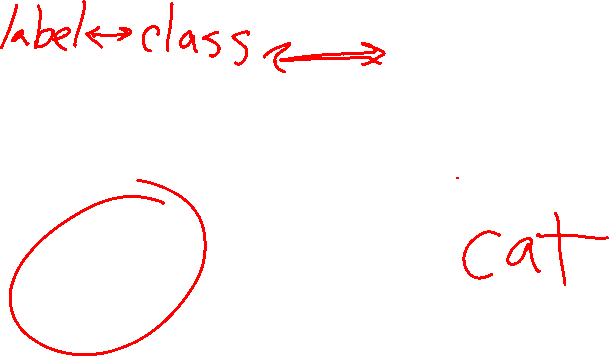 label↔class ↔
cat